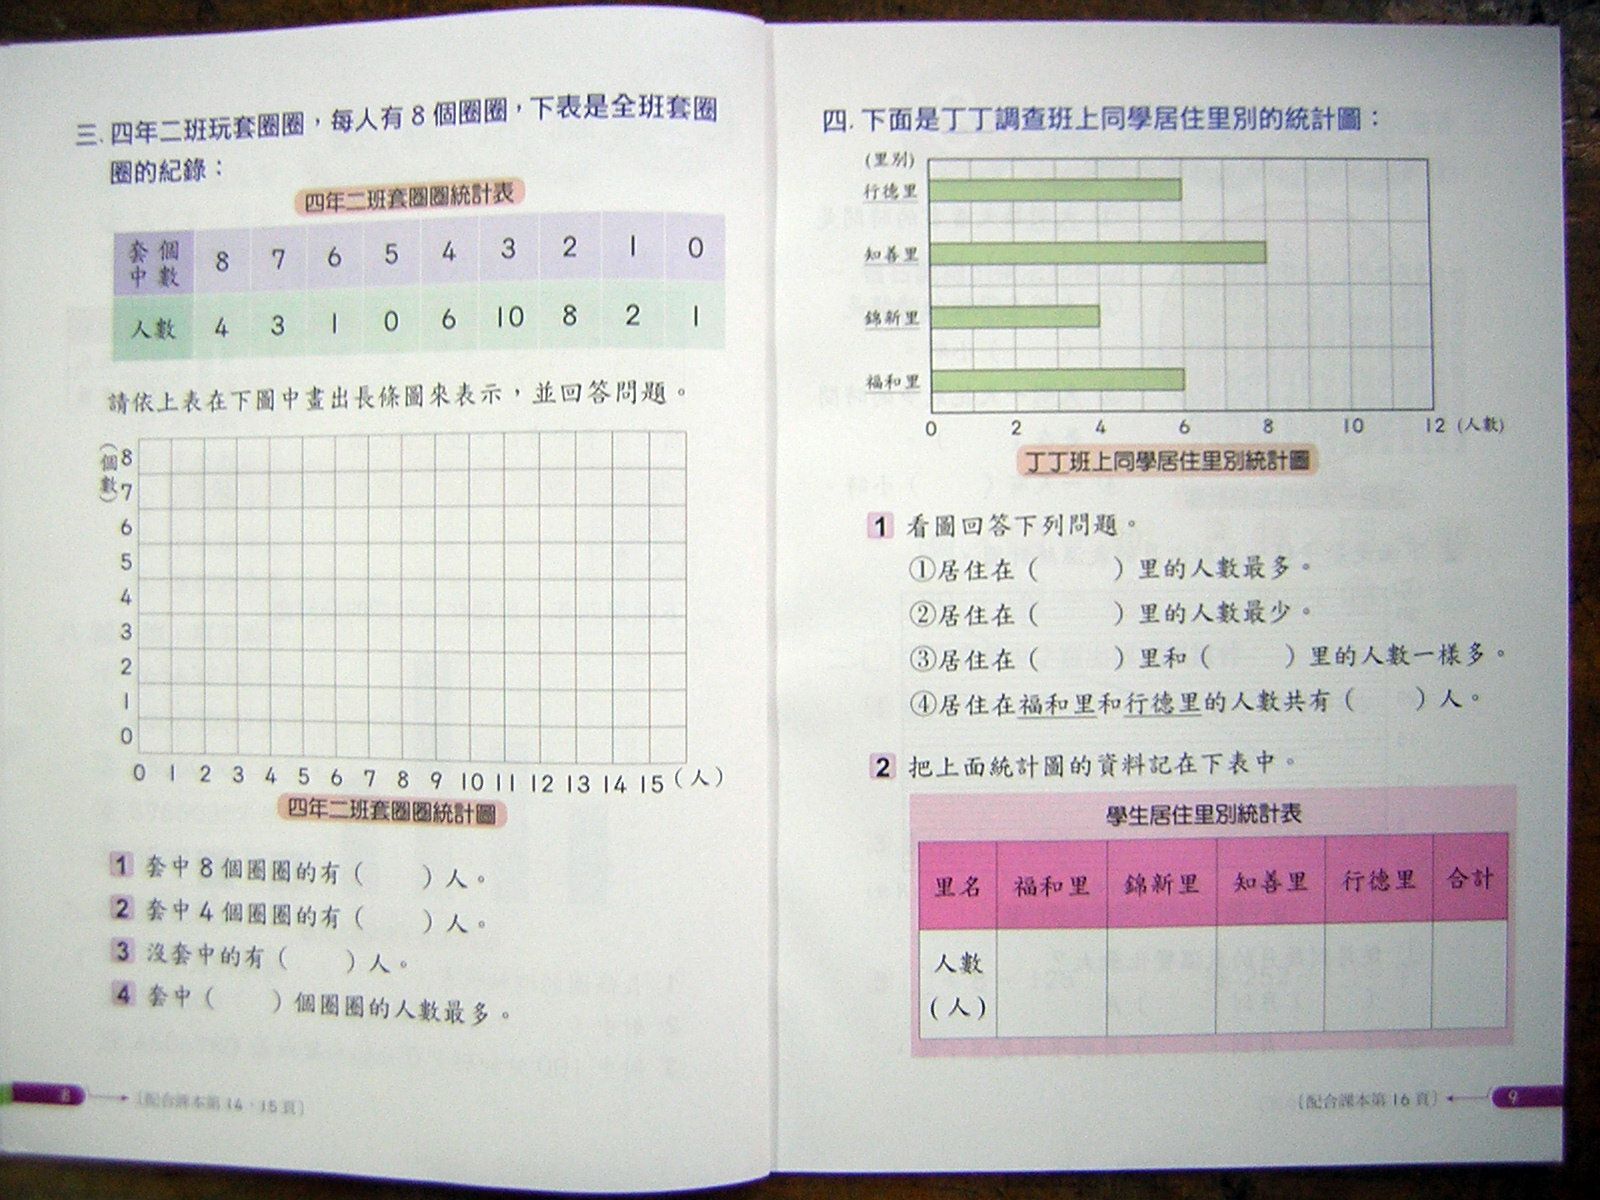 三. 四年二班玩套圈圈，每人有 8 個圈圈，下表是全班套圈
圈的紀錄：
四年二班套圈圈統計表
套中個數 8 7 6 5 4 3 2 1 0
人數 4 3 1 0 6 10 8 2 1
請依上表在下圖中畫出長條圖來表示，並回答問題。
（個數）
8
7
6
5
4
3
2
1
0
0 1 2 3 4 5 6 7 8 9 10 11 12 13 14 15（人）
四年二班套圈圈統計圖
1 套中 8 個圈圈的有（　　）人。
2 套中 4 個圈圈的有（　　）人。
3 沒套中的有（　　）人。
4 套中（　　）個圈圈的人數最多。
8
〔配合課本第 14、15 頁〕
四. 下面是丁丁調查班上同學居住里別的統計圖：
（里別）
行德里
知善里
錦新里
福和里
0 2 4 6 8 10 12（人數）
丁丁班上同學居住里別統計圖
1 看圖回答下列問題。
①居住在（　　）里的人數最多。
②居住在（　　）里的人數最少。
③居住在（　　）里和（　　）里的人數一樣多。
④居住在福和里和行德里的人數共有（　　）人。
2 把上面統計圖的資料記在下表中。
學生居住里別統計表
里名 福和里 錦新里 知善里 行德里 合計
人數
（人）
〔配合課本第 16 頁〕
9